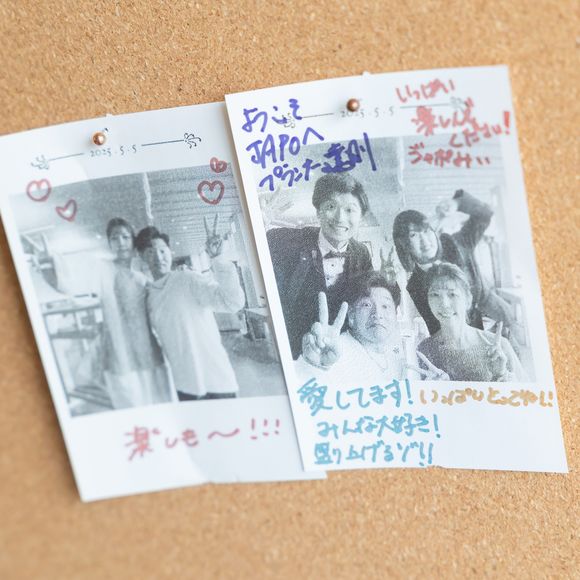 2025.5.5
楽しも〜!!!
ようこそ
JAPOへ
プランナー
2025.5.5
いっぱい
楽しんで
ください!
ジャポみい
愛してます!
みんな大好き!
盛り上げるゾ!!